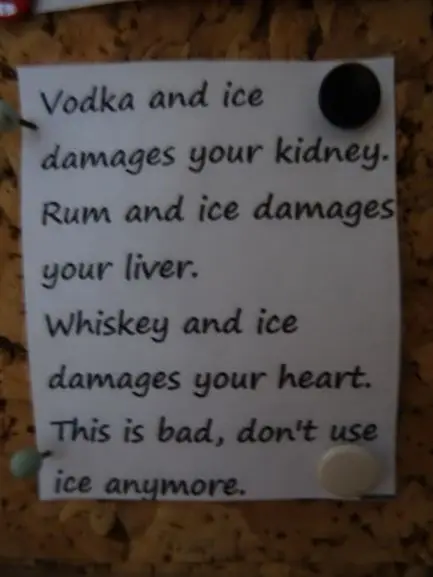 Vodka and ice
damages your kidney.
Rum and ice damages
your liver.
Whiskey and ice
damages your heart.
This is bad, don't use
ice anymore.